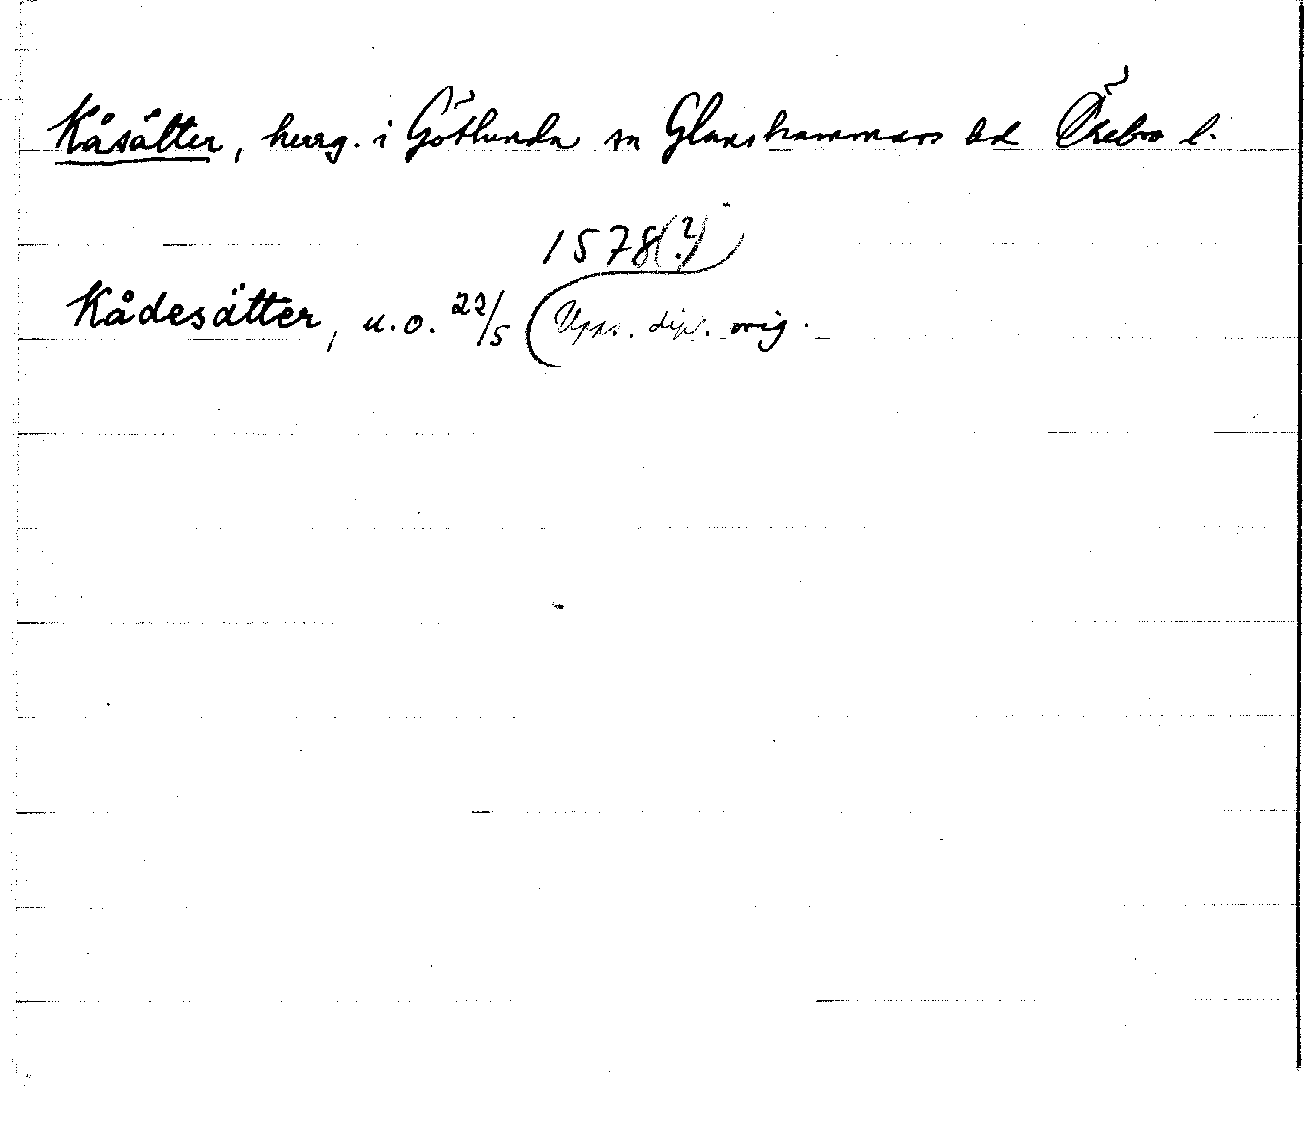 Kåsätter, herrg. i Götlunda sn Glanshammars hd Örebro l.
1578(?)
Kådesätter, u.o. 22/5 (Upps. dipl. orig.